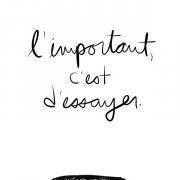 l'important,
c'est
d'essayer.